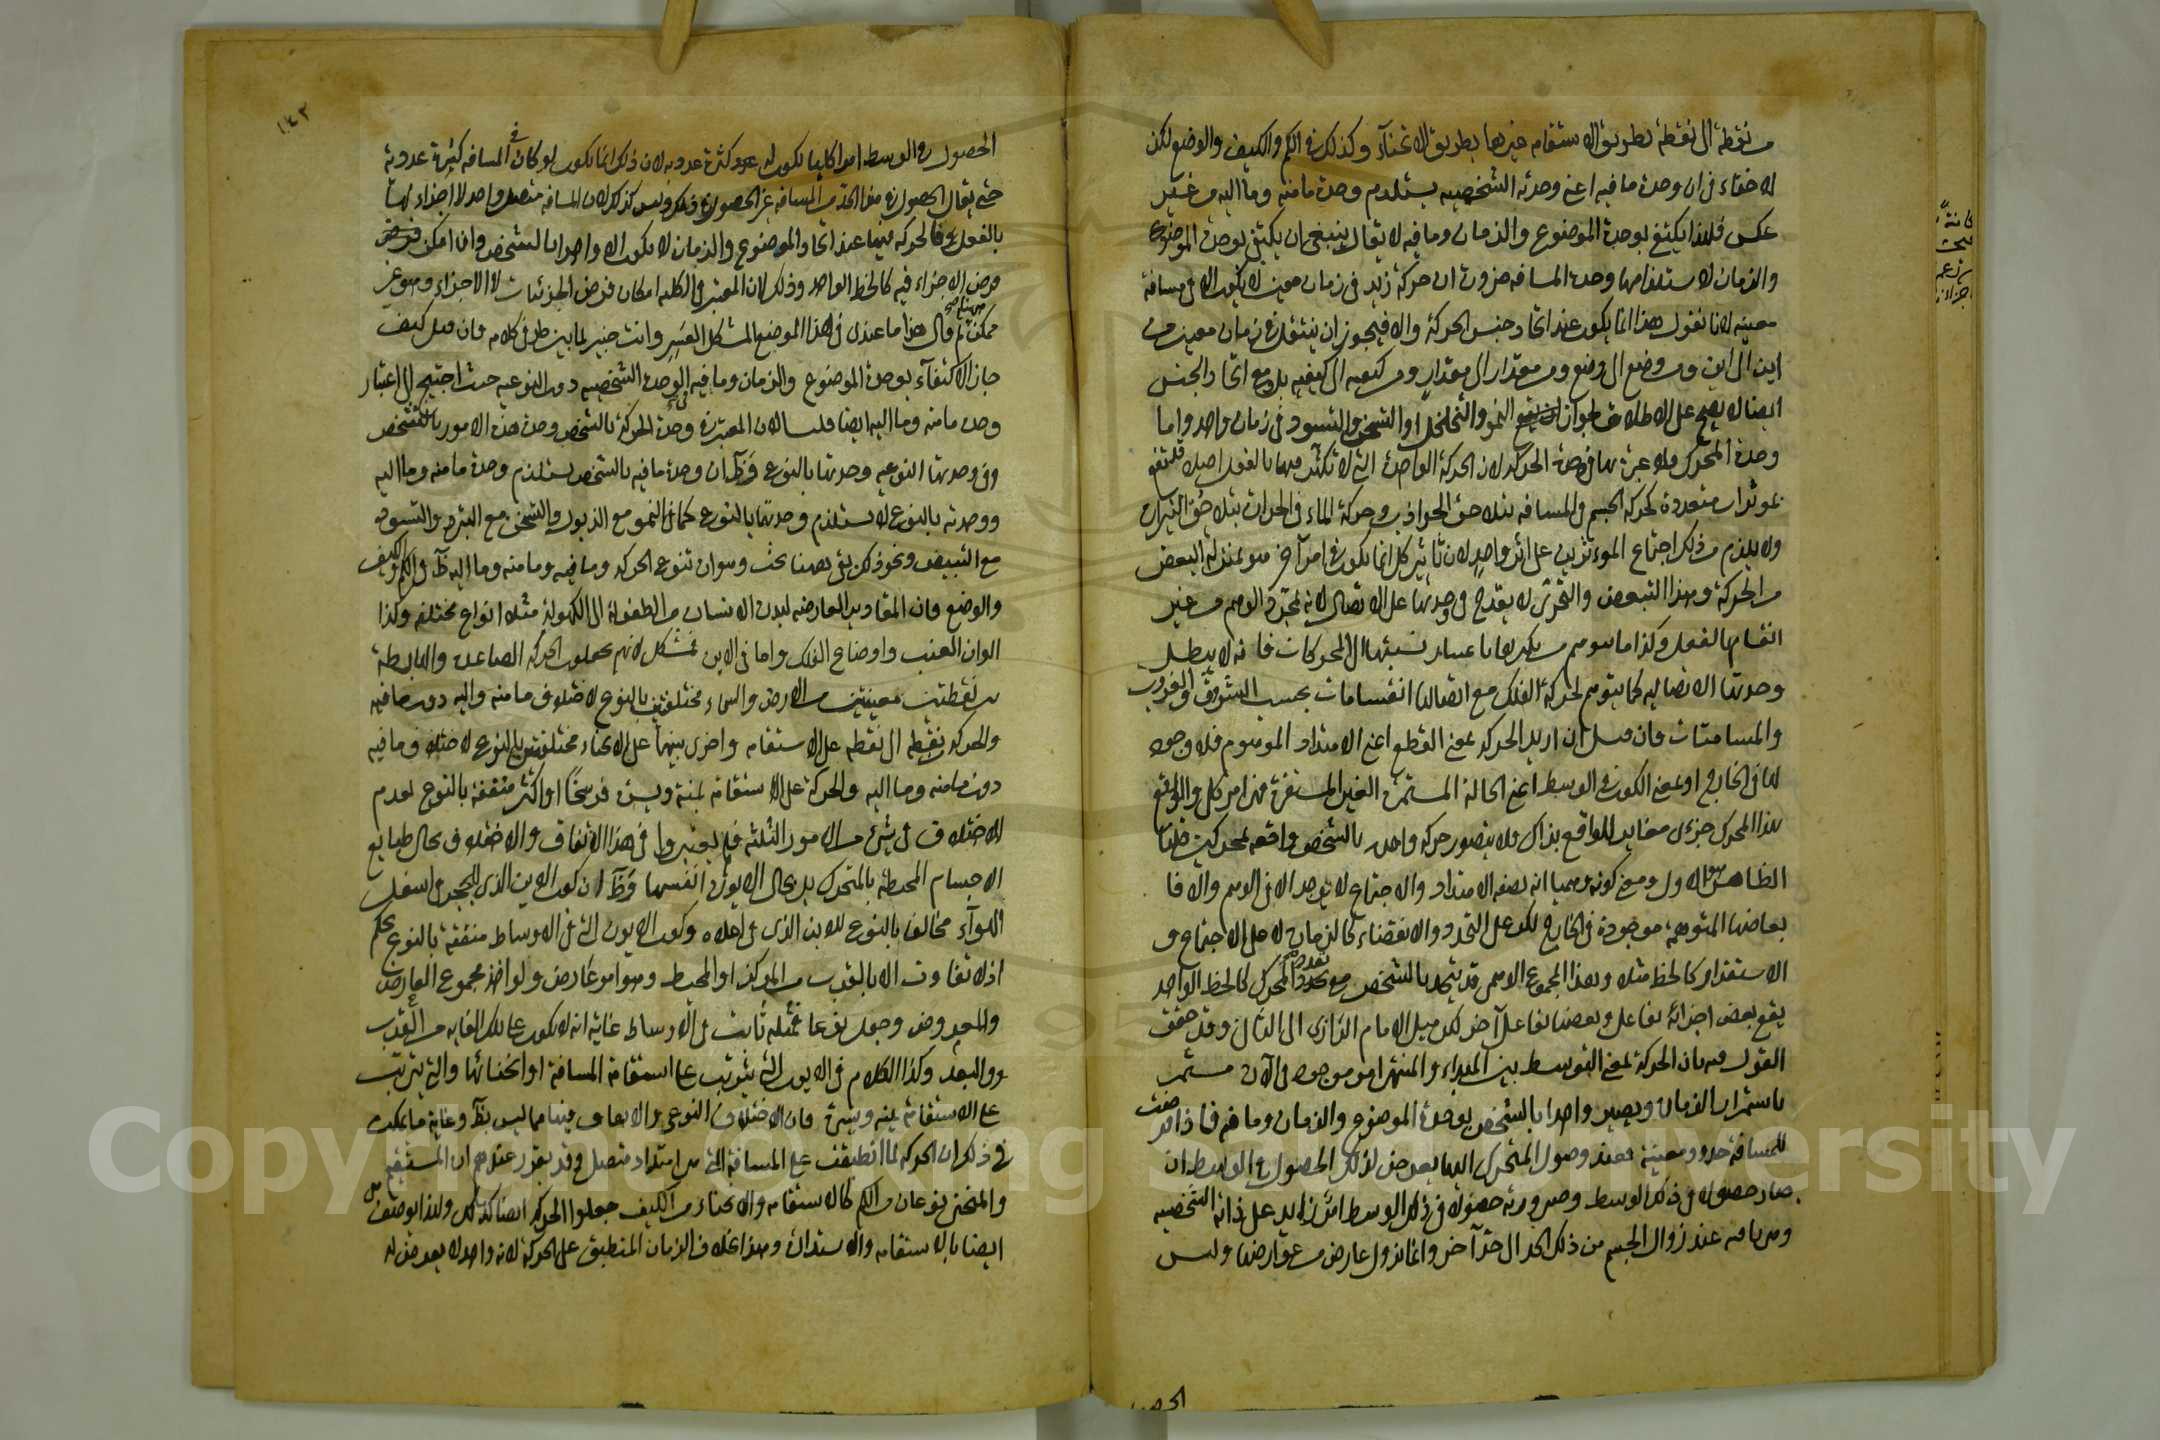 من نقطة الى نقطة بطريق الاستقامة غيرها بطريق الانحناء وكذلك في الكم والكيف والوضع لكن
لا خفاء في ان وحدة ما فيه اعني وحدته الشخصية يستلزم وحدة ما منه وما اليه من غير
عكس فلذا يكتفى بوحدة الموضوع والزمان وما فيه لا يقال ينبغي ان يكتفى بوحدة الموضوع
والزمان لاستلزامها وحدة المسافة ضرورة ان حركة زيد في زمان معين لا يكون الا في مسافة
معينة لانا نقول هذا انما يكون عند اتحاد جنس الحركة والا فيجوز ان ينتقل في زمان معين من
اين الى اين ومن وضع الى وضع ومن مقدار الى مقدار ومن كيفيه الى كيفيه بل مع اتحاد الجنس
ايضا لا يصح على الاطلاق لجواز ان يقع النمو والتخلخل او التسخن والتسود في زمان واحد واما
وحدة المحرك فلا عبرة بها في وحدة الحركة لان الحركة الواحدة التي لا تكثر فيها بالفعل اصلا قد تقع
بمؤثرات متعددة كحركة الجسم في المسافة بتلاحق الجواذب وحركة الماء في الحرارة بتلاحق النيران
ولا يلزم من ذلك اجتماع المؤثرين على اثر واحد لان تاثير كل انما يكون في امر آخر هو بمنزلة البعض
من الحركة وهذا التبعض والتجزي لا يقدح في وحدتها على الاتصال لانه بمجرد الوهم من غير
انقسام بالفعل وكذا ما يتوهم من تكثرها باعتبار نسبتها الى المحركات فانه لا يبطل
وحدتها الاتصاليه كما يتوهم لحركة الفلك مع اتصالها انقسامات بحسب الشروق والغروب
والمسامتات فان قيل ان اريد الحركة بمعنى القطع اعني الامتداد الموهوم فلا وجود
لها في الخارج او بمعنى الكون في الوسط اعني الحالة المستمرة الغير المستقرة فهذا امر كلي والواقع
بهذا المحرك جزئي مغاير للواقع بذاك فلا يتصور حركة واحدة بالشخص واقعة بمحركين قلنا
الظاهر هو الاول ومعنى كونه وهميا انه بصفة الامتداد والاجتماع لا يوجد الا في الوهم والا فا
بعاضها المتوهمة موجودة في الخارج لكن على التجدد والانقضاء كالزمان لا على الاجتماع و
الاستقرار كالخط مثلا وهذا المجموع الوهمي قد يتحد بالشخص مع تعدد المحرك كالخط الواحد
يقع بعض اجزائه بفاعل وبعضها بفاعل آخر لكن ميل الامام الرازي الى الثاني وقد حقق
القول فيه بان الحركة بمعنى التوسط بين المبداء والمنتهى امر موجود في الآن مستمر
باستمرار الزمان ويصير واحدا بالشخص بوحدة الموضوع والزمان وما فيه فاذا فرضت
للمسافة حدود معينة فعند وصول المتحرك اليها يعرض لذلك الحصول في الوسط ان
صار حصولا في ذلك الوسط وصيرورته حصولا في ذلك الوسط امر زايد على ذاته الشخصيه
وهي باقيه عند زوال الجسم من ذلك الحد الى حد آخر وانما يزول عارض من عوارضها وليس
الحصول
الحصول في الوسط امرا كليا يكون له كثرة عددية لان ذلك انما يكون لو كان في المسافة كثرة عددية
حتى يقال الحصول في هذا الحد من المسافة غير الحصول في ذلك وليس كذلك لان المسافة متصل واحد لا اجزاء لها
بالفعل فالحركة فيها عند اتحاد الموضوع والزمان لا يكون الا واحدا بالشخص وان امكن فرض
فرض الاجزاء فيه كالخط الواحد وذلك لان المعتبر في الكلية امكان فرض الجزئيات لا الاجزاء وهو غير
ممكن ههنا ثم قال هذا ما عندي في هذا الموضع المشكل العسر وانت خبير بما بين طرفي كلامه فان قيل كيف
جاز الاكتفاء بوحدة الموضوع والزمان وما فيه في الوحدة الشخصيه دون النوعيه حيث احتيج الى اعتبار
وحدة ما منه وما اليه ايضا قلنا لان المعتبر في وحدة الحركة بالشخص وحدة هذه الامور بالشخص
وفي وحدتها النوعيه وحدتها بالنوع وظ ان وحدة ما فيه بالشخص يستلزم وحدة ما منه وما اليه
ووحدته بالنوع لا يستلزم وحدتهما بالنوع كما في النمو مع الذبول والتسخن مع التبرد والتسود
مع التبيض ونحو ذلك بقي ههنا بحث وهو ان تنوع الحركة وما فيه وما منه وما اليه ظ في الكم والكيف
والوضع فان المقادير العارضة لبدن الانسان من الطفولة الى الكهولة مثلا انواع مختلفة وكذا
الوان العنب واوضاع الفلك واما في الاين فمشكل لانهم يجعلون الحركة الصاعدة والهابطة
بين نقطتين معينتين من الارض والسماء مختلفتين بالنوع لاختلاف ما منه واليه دون ما فيه
والحركة من نقطة الى نقطة على الاستقامة واخرى بينهما على الانحناء مختلفتين بالنوع لاختلاف ما فيه
دون ما منه وما اليه والحركة على الاستقامة يمنة ويسرة فرسخا او اكثر متفقة بالنوع لعدم
الاختلاف في شيء من الامور الثلثة فلم يعتبروا في هذا الاتفاق والاختلاف بحال طبايع
الاجسام المحيطة بالمتحرك بل بحال الايون انفسها وظ ان كون الاين الذي للحجر في اسفل
الهواء مخالفا بالنوع للاين الذي في اعلاه وكون الايون التي في الاوساط متفقة بالنوع تحكم
اذ لا تفاوت الا بالقرب من المركز او المحيط وهو امر عارض ولو اخذ مجموع العارض
والمعروض وجعل نوعا فمثله ثابت في الاوساط غايته انه لا يكون على تلك الغايه من القرب
والبعد وكذا الكلام في الايون التي يترتب على استقامة المسافة او انحنائها والتي يترتب
على الاستقامة يمنه ويسرة فان الاختلاف النوعي والاتفاق بينهما ليس بظ وغاية ما يمكن
في ذلك ان الحركة لما انطبقت على المسافة التي هي امتداد متصل وقد تقرر عندهم ان المستقيم
والمنحني نوعان من الكم كالاستقامة والانحناء من الكيف جعلوا الحركة ايضا كذلك ولذا يوصف هي
ايضا بالاستقامة والاستدارة وهذا بخلاف الزمان المنطبق على الحركة لانه واحد لا يعرض له
١٤٢
Copyright © King Saud University